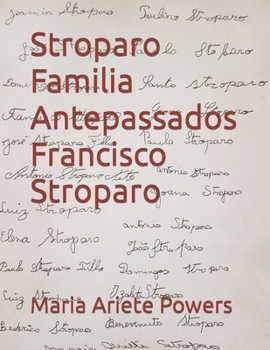 Joanin Stroparo
Turbino Stroparo
Stroparo
Familia
Antepassados
Francisco
Stroparo
Santo Stroparo
José Stroparo Filho
Paulo Stroparo
Antonio Stroparo Neto
antonio Stroparo
Joana Stroparo
Luiz Stroparo
antonio Stroparo
Elena Stroparo
João Stroparo
Paulo Stroparo Filho
Domingos Stroparo
Luiz Stroparo
Maria Ariete Powers
Federico Stroparo
Benvenuto Stroparo
Maria Ariete Stroparo